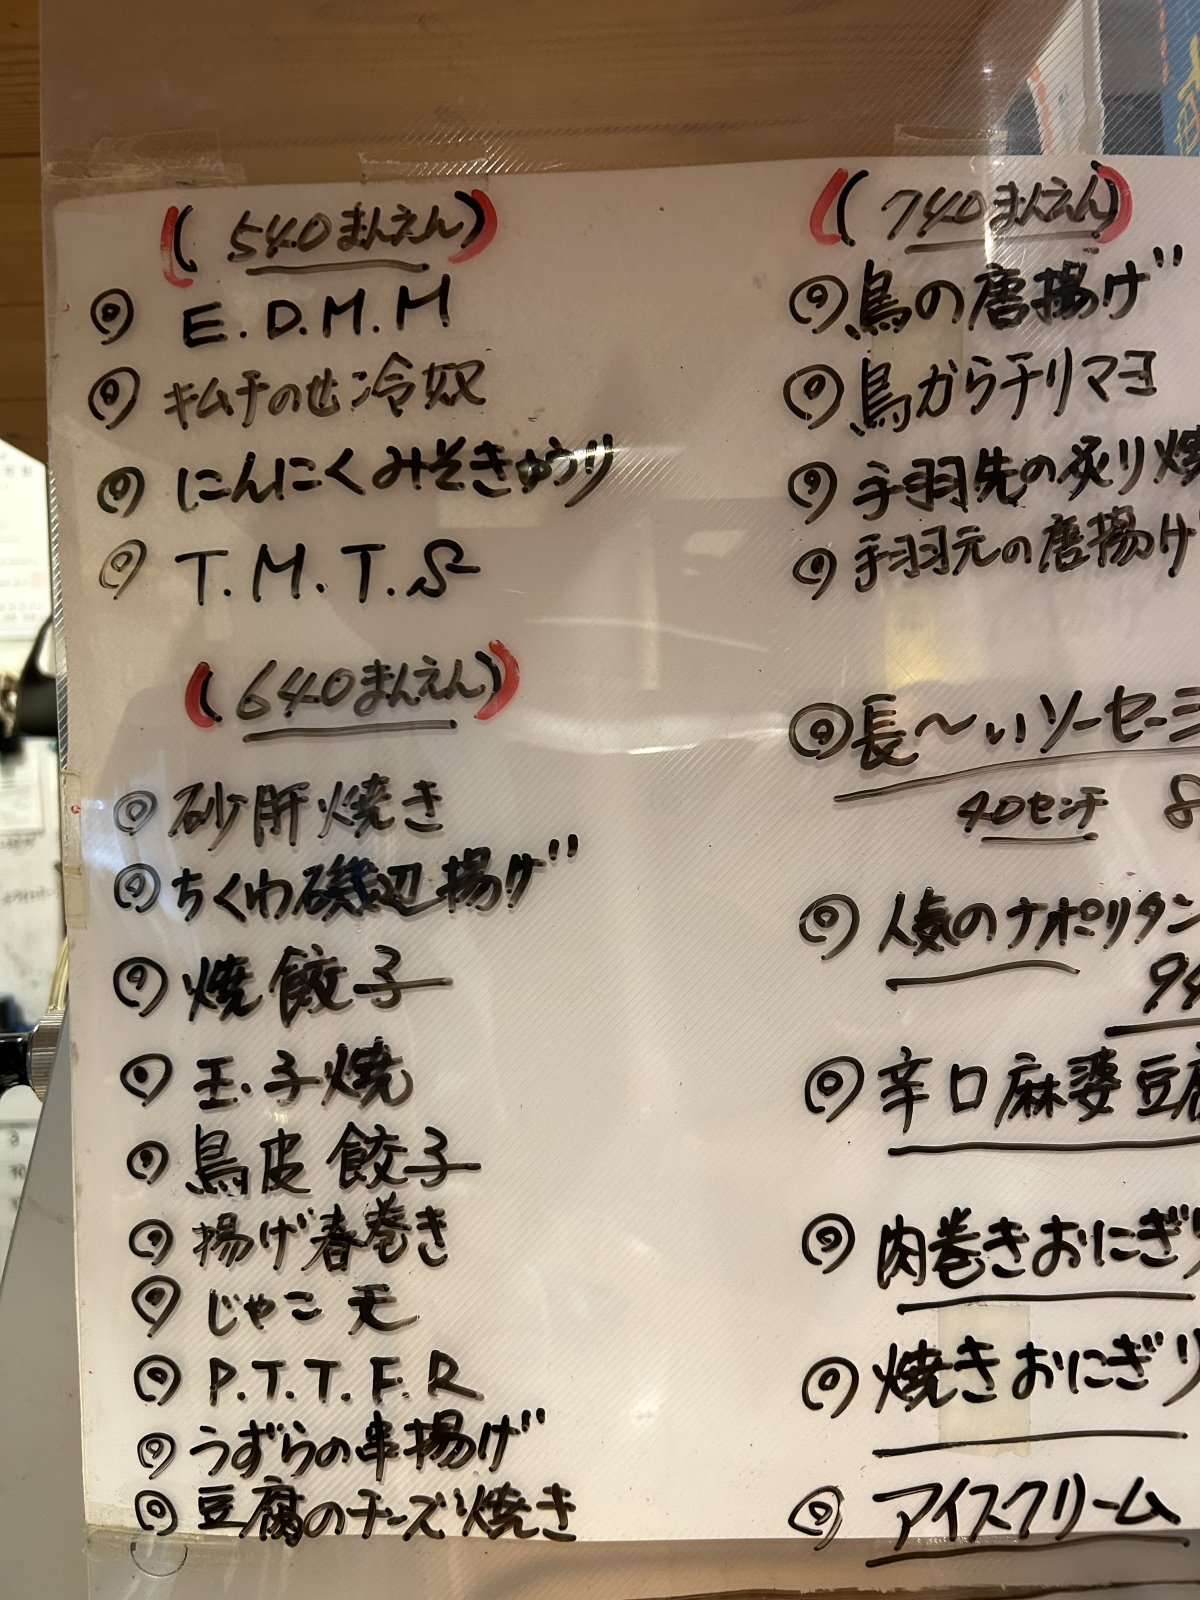 (540まんえん)
◎ E.D.M.M
◎ キムチのせ冷奴
◎ にんにくみそきゅうり
◎ T.M.T.S
(640まんえん)
◎ 砂肝焼き
◎ ちくわ磯辺揚げ
◎ 焼餃子
◎ 玉子焼
◎ 鳥皮餃子
◎ 揚げ春巻き
◎ じゃこ天
◎ P.T.T.F.R
◎ うずらの串揚げ
◎ 豆腐のチーズ焼き
(740まんえん)
◎ 鳥の唐揚げ
◎ 鳥からチリマヨ
◎ 手羽先の炙り焼
◎ 手羽元の唐揚げ
◎ 長〜いソーセージ
40センチ 8
◎ 人気のナポリタン
94
◎ 辛口麻婆豆腐
◎ 肉巻きおにぎり
◎ 焼きおにぎり
◎ アイスクリーム